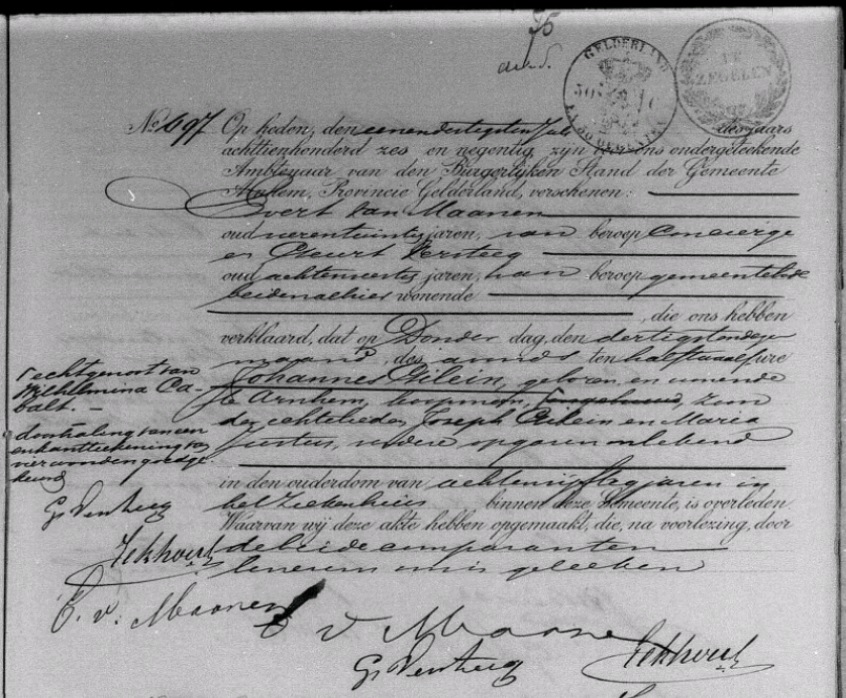 75
GELDERLAND
50 C
EN 38 OPCENTEN
TE
ZEGELEN
No. 697 Op heden, den eenendertigsten Juli des jaars
achttienhonderd zes en negentig zijn voor ons ondergeteekende
Ambtenaar van den Burgerlijken Stand der Gemeente
Arnhem, Provincie Gelderland, verschenen:
Evert van Maanen
oud jaren, van beroep Concierge
en Geurt Versteeg
oud achtenveertig jaren, van beroep gemeentebode
beiden alhier wonende
, die ons hebben
verklaard, dat op Donderdag, den dertigsten dezer
maand, des avonds ten half twaalf ure
Johannes Eilein, geboren en wonende
te Arnhem, koopman, ongehuwd, zoon
der echtelieden Joseph Eilein en Maria
in den ouderdom van achtenvijftig jaren in
het Ziekenhuis binnen deze Gemeente, is overleden
Waarvan wij deze akte hebben opgemaakt, die, na voorlezing, door
de beide comparanten
benevens ons is geteekend
echtgenoot van
Wilhelmina Ca-
balt. –
doorhaling van een
en kantteekening van
vier woorden goedge-
keurd
G. Versteeg
Eekhout
E. v. Maanen
E v Maanen
G. Versteeg
Eekhout